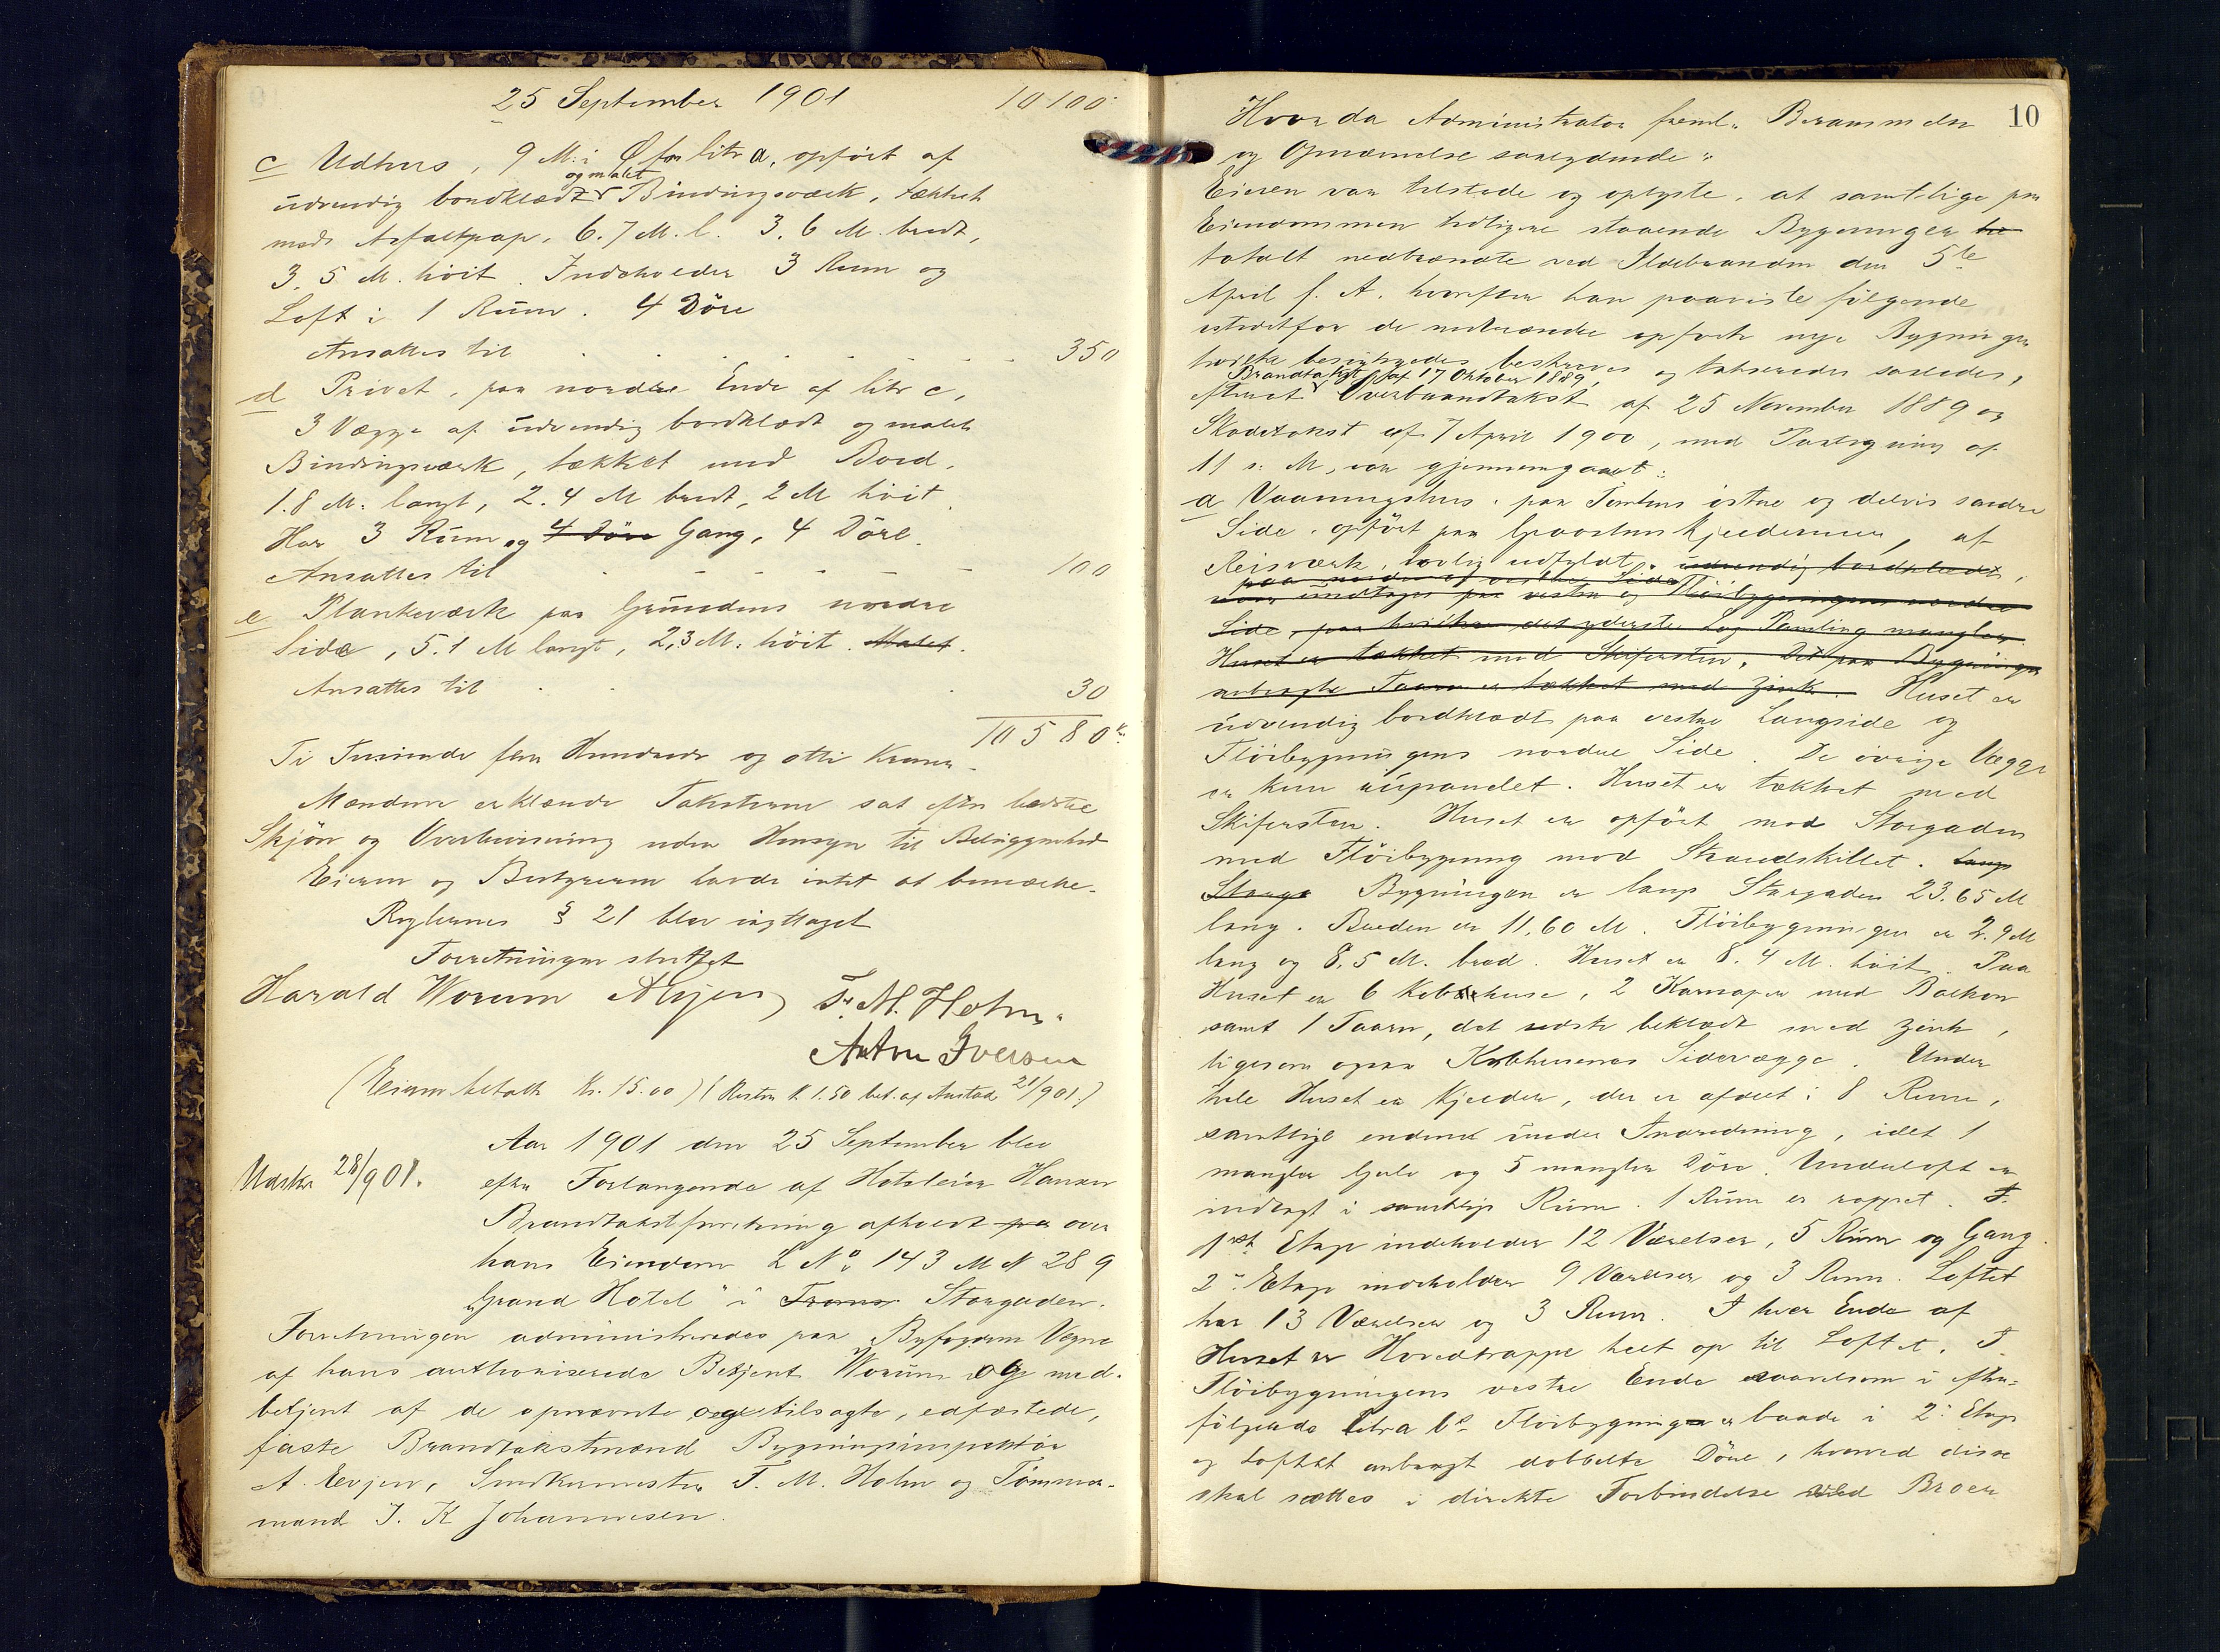 25 September 1901 10100.
c Udhus, 9 M. i Ø for litr a, opført af
og malet
udvendig bordklædt Bindingsværk, tækket
med Asfaltpap, 6.7 M. l. 3.6 M. bredt,
3.5 M. høit. Indeholder 3 Rum og
Loft i 1 Rum. 4 Döre
Ansattes til . . . . . . 350
d Privet, paa nordre Ende af litr c,
3 Vægge af udvendig bordklædt og malet
Bindingsværk, tækket med Bord.
1.8 M. langt, 2.4 M bredt, 2 M høit.
Har 3 Rum og 4 Döre Gang, 4 Döre.
Ansattes til . . . . . . 100
e Plankeværk paa Grundens nordre
Side, 5.1 M langt, 2,3 M. høit. Malet.
Ansattes til . . . 30
10580 kr.
Ti Tusinde fem Hundrede og otti Kroner.
Mændene erklærede Taksterne sat efter bedste
Skjön og Overbevisning uden Hensyn til Beliggenhed
Eieren og Bestyreren havde intet at bemærke.
Reglernes § 21 blev iagttaget
Forretningen sluttet
Harald Worum A Evjen F. M. Holm.
Anton Iversen
(Eieren betalte Kr. 15.00) (Resten K. 1.50 bet. af Anstad 21/901.)
Aar 1901 den 25 September blev
Udskr 28/901. efter Forlangende af Hoteleier Hansen
Brandtakstforretning afholdt paa over
hans Eiendom L No. 143 M N 289
"Grand Hotel" i Troms Storgaden.
Forretningen administreredes paa Byfogdens Vegne
af hans authoriserede Betjent Worum og med-
betjent af de opnævnte og tilsagte, edfæstede,
faste Brandtakstmænd Bygningsinspektør
A. Evjen, Snedkermester F. M. Holm og Tömmer-
mand J. K Johannesen.
10
Hvor da Administrator freml. Berammelse
og Opnævnelse saalydende:
Eieren var tilstede og oplyste, at samtlige paa
Eiendommen tidligere staaende Bygninger be
totalt nedbrændte ved Ildebranden den 5te
April f. A. hvorefter han paaviste følgende
istedetfor de nedbrændte opførte nye Bygninger
hvilke besigtigedes, beskreves og takseredes saaledes,
Brandtakst paa 17 Oktober 1889,
efterat Overbrandtakst af 25 November 1889 og
Skadetakst af 7 April 1900, med Paategning af
11 s. M, var gjennemgaaet:
a Vaaningshus, paa Tomtens østre og delvis søndre
Side, opført paa Graastens kjeldermur, af
Reisværk, lovlig udfyldt, udvendig bordklædt,
paa nordre og vestre Side
undtages paa vestre og Flöibygningens nordre
Side, paa hvilke det yderste Lag Panling mangler.
Huset er tækket med Skifersten. Det paa Bygningen
anbragte Taarn er tækket med Zink. Huset er
udvendig bordklædt paa vestre Langside og
Flöibygningens nordre Side. De övrige Vægge
er kun uupanelet. Huset er tækket med
Skifersten. Huset er opført mod Storgaden
med Flöibygning mod Strandskillet. Langs
Storga Bygningen er langs Storgaden 23.65 M
lang. Bredden er 11.60 M. Flöibygningen er 2.9 M
lang og 8.5 M. bred. Huset er 8.4 M. høit. Paa
Huset er 6 Kobhuse, 2 Karnaper med Balkon
samt 1 Taarn, det sidste beklædt med Zink,
ligesom ogsaa Kobhusenes Sidevægge. Under
hele Huset er Kjelder, der er afdelt i 8 Rum,
samtlige endnu under Indredning, idet 1
mangler Gulv og 5 mangler Döre. Underloft er
indlagt i samtlige Rum. 1 Rum er rappet. I
1ste Etage indeholder 12 Værelser, 5 Rum og Gang.
2. Etage indeholder 9 Værelser og 3 Rum. Loftet
har 13 Værelser og 3 Rum. I hver Ende af
Huset er Hovedtrappe helt op til Loftet. I
Flöibygningens vestre Ende saavelsom i efter-
følgende litra b's Flöibygning er baade i 2. Etage
og Loftet anbragt dobbelte Döre, hvorved disse
skal sættes i direkte Forbindelse ved Broer